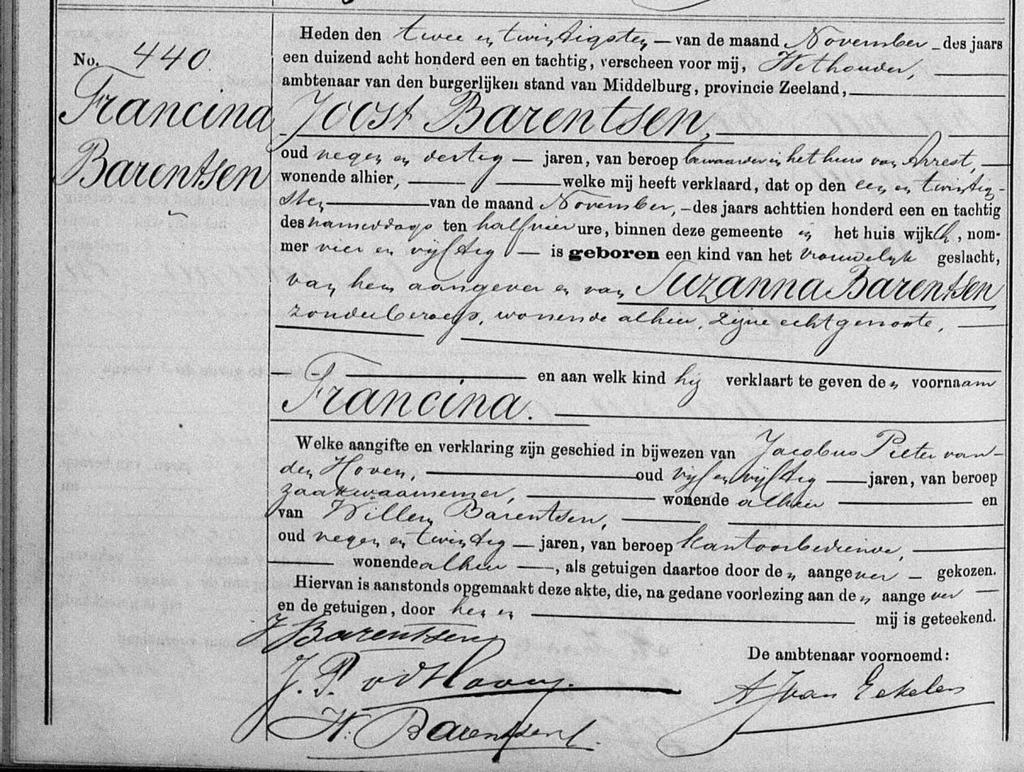 No. 440
Francina
Barentsen
Heden den twee en twintigsten van de maand November des jaars
een duizend acht honderd een en tachtig, verscheen voor mij, Wethouder,
ambtenaar van den burgerlijken stand van Middelburg, provincie Zeeland,
Joost Barentsen,
oud negen en dertig jaren, van beroep bewaarder in het huis van Arrest,
wonende alhier, welke mij heeft verklaard, dat op den een en twintig-
sten van de maand November, des jaars achttien honderd een en tachtig
des namiddags ten half vier ure, binnen deze gemeente in het huis wijk, nom-
mer vier en vijftig is geboren een kind van het vrouwelijk geslacht,
van hem aangever en van Suzanna Barentsen
zonder beroep, wonende alhier, zijne echtgenoote,
en aan welk kind hij verklaart te geven den voornaam
Francina.
Welke aangifte en verklaring zijn geschied in bijwezen van Jacobus Pieter van
den Hoven, oud vijf en vijftig jaren, van beroep
zaakwaarnemer, wonende alhier en
van Willem Barentsen,
oud negen en twintig jaren, van beroep kantoorbediende,
wonende alhier, als getuigen daartoe door den aangever gekozen.
Hiervan is aanstonds opgemaakt deze akte, die, na gedane voorlezing aan den aangever
en de getuigen, door hen en mij is geteekend.
J Barentsen
De ambtenaar voornoemd:
J. P. v d Hoven.
W. Barentsen